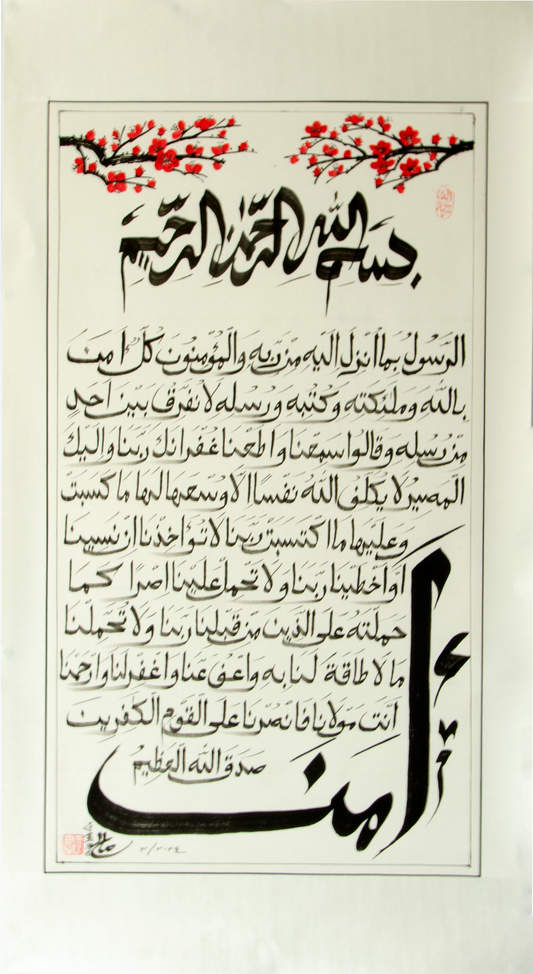 بسم الله الرحمن الرحيم
أمن
الرَّسول بما أنزل اليه من ربه والمؤمنون كل امن
بالله وملئكته وكتبه ورسله لا نفرق بين احد
من رسله وقالوا سمعنا واطعنا غفرانك ربنا واليك
المصير لا يكلف الله نفسًا الا وسعها لها ما كسبت
وعليها ما اكتسبت ربنا لا تؤاخذنا ان نسينا
او اخطينا ربنا ولا تحمل علينا اصرا كما
حملته على الذين من قبلنا ربنا ولا تحملنا
ما لا طاقة لنا به واعف عنا واغفر لنا وارحمنا
انت مولانا فانصرنا على القوم الكفرين
صدق الله العظيم